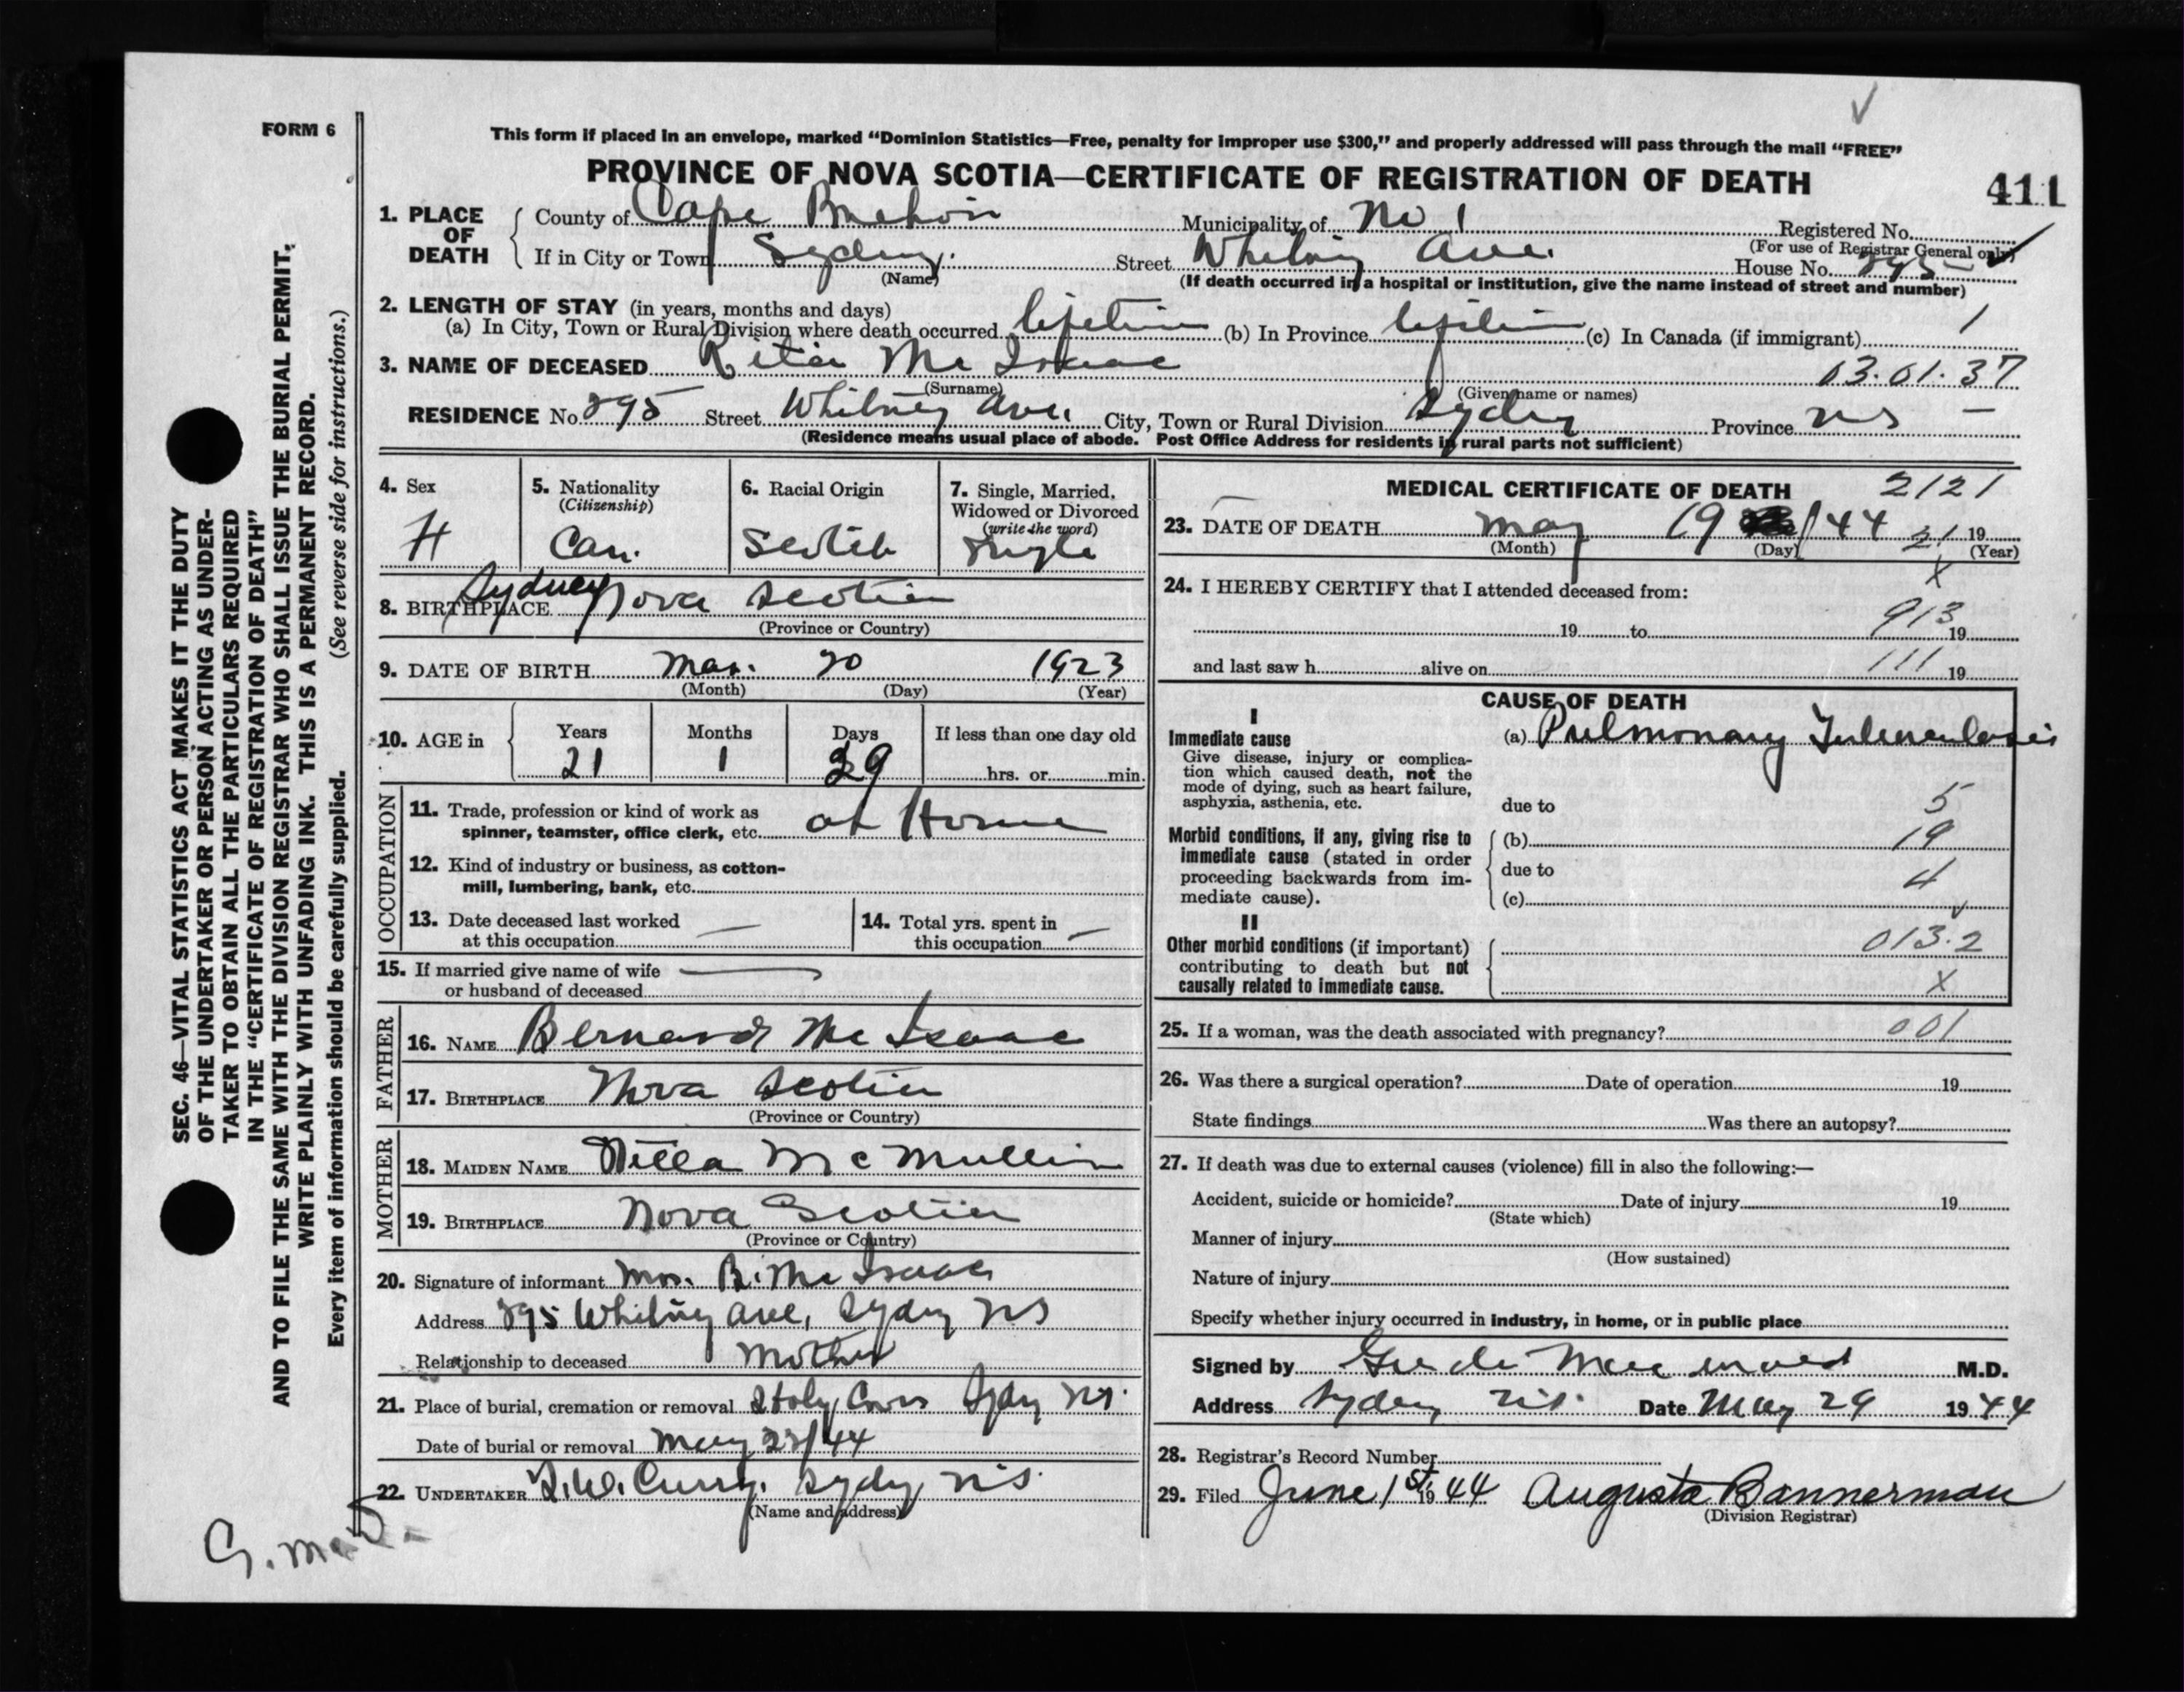 FORM 6
This form if placed in an envelope, marked “Dominion Statistics—Free, penalty for improper use $300,” and properly addressed will pass through the mail “FREE”
PROVINCE OF NOVA SCOTIA—CERTIFICATE OF REGISTRATION OF DEATH
411
1. PLACE OF DEATH
County of Cape Breton Municipality of No 1 Registered No.
(For use of Registrar General only)
If in City or Town Sydney. Street Whitney Ave. House No. 295
(Name) (If death occurred in a hospital or institution, give the name instead of street and number)
2. LENGTH OF STAY (in years, months and days)
(a) In City, Town or Rural Division where death occurred lifetime (b) In Province lifetime (c) In Canada (if immigrant) 1
3. NAME OF DECEASED Rita Mc Isaac 03.01.37
(Surname) (Given name or names)
RESIDENCE No. 295 Street Whitney Ave. City, Town or Rural Division Sydney Province NS —
(Residence means usual place of abode. Post Office Address for residents in rural parts not sufficient)
4. Sex 5. Nationality (Citizenship) 6. Racial Origin 7. Single, Married, Widowed or Divorced (write the word)
Can. Scotch Single
8. BIRTHPLACE Sydney Nova Scotia
(Province or Country)
9. DATE OF BIRTH Mar. 20 1923
(Month) (Day) (Year)
10. AGE in Years Months Days If less than one day old
21 1 29 hrs. or min.
OCCUPATION
11. Trade, profession or kind of work as
spinner, teamster, office clerk, etc. at Home
12. Kind of industry or business, as cotton-
mill, lumbering, bank, etc.
13. Date deceased last worked
at this occupation —
14. Total yrs. spent in
this occupation —
15. If married give name of wife —
or husband of deceased
FATHER
16. NAME Bernard Mc Isaac
17. BIRTHPLACE Nova Scotia
(Province or Country)
MOTHER
18. MAIDEN NAME McMullin
19. BIRTHPLACE Nova Scotia
(Province or Country)
20. Signature of informant Mrs. B. Mc Isaac
Address 295 Whitney Ave, Sydney NS
Relationship to deceased Mother
21. Place of burial, cremation or removal Holy Cross Sydney N.S.
Date of burial or removal May 22/44
22. UNDERTAKER Curry. Sydney N.S.
(Name and address)
MEDICAL CERTIFICATE OF DEATH 2121
23. DATE OF DEATH May 19 /44 21 19
(Month) (Day) (Year)
24. I HEREBY CERTIFY that I attended deceased from: X
19 to 913 19
and last saw h alive on 111 19
CAUSE OF DEATH
I
Immediate cause
Give disease, injury or complica-
tion which caused death, not the
mode of dying, such as heart failure,
asphyxia, asthenia, etc.
(a) Pulmonary Tuberculosis
due to 5
Morbid conditions, if any, giving rise to
immediate cause (stated in order
proceeding backwards from im-
mediate cause).
(b) 19
due to 4
(c)
II
Other morbid conditions (if important)
contributing to death but not
causally related to immediate cause.
013.2
X
25. If a woman, was the death associated with pregnancy? 001
26. Was there a surgical operation? Date of operation 19
State findings Was there an autopsy?
27. If death was due to external causes (violence) fill in also the following:—
Accident, suicide or homicide? Date of injury 19
(State which)
Manner of injury
(How sustained)
Nature of injury
Specify whether injury occurred in industry, in home, or in public place
Signed by M.D.
Address Sydney N.S. Date May 29 1944
28. Registrar’s Record Number
29. Filed June 1st 1944 Augusta Bannerman
(Division Registrar)
SEC. 46—VITAL STATISTICS ACT MAKES IT THE DUTY
OF THE UNDERTAKER OR PERSON ACTING AS UNDER-
TAKER TO OBTAIN ALL THE PARTICULARS REQUIRED
IN THE “CERTIFICATE OF REGISTRATION OF DEATH”
AND TO FILE THE SAME WITH THE DIVISION REGISTRAR WHO SHALL ISSUE THE BURIAL PERMIT.
WRITE PLAINLY WITH UNFADING INK. THIS IS A PERMANENT RECORD.
Every item of information should be carefully supplied. (See reverse side for instructions.)